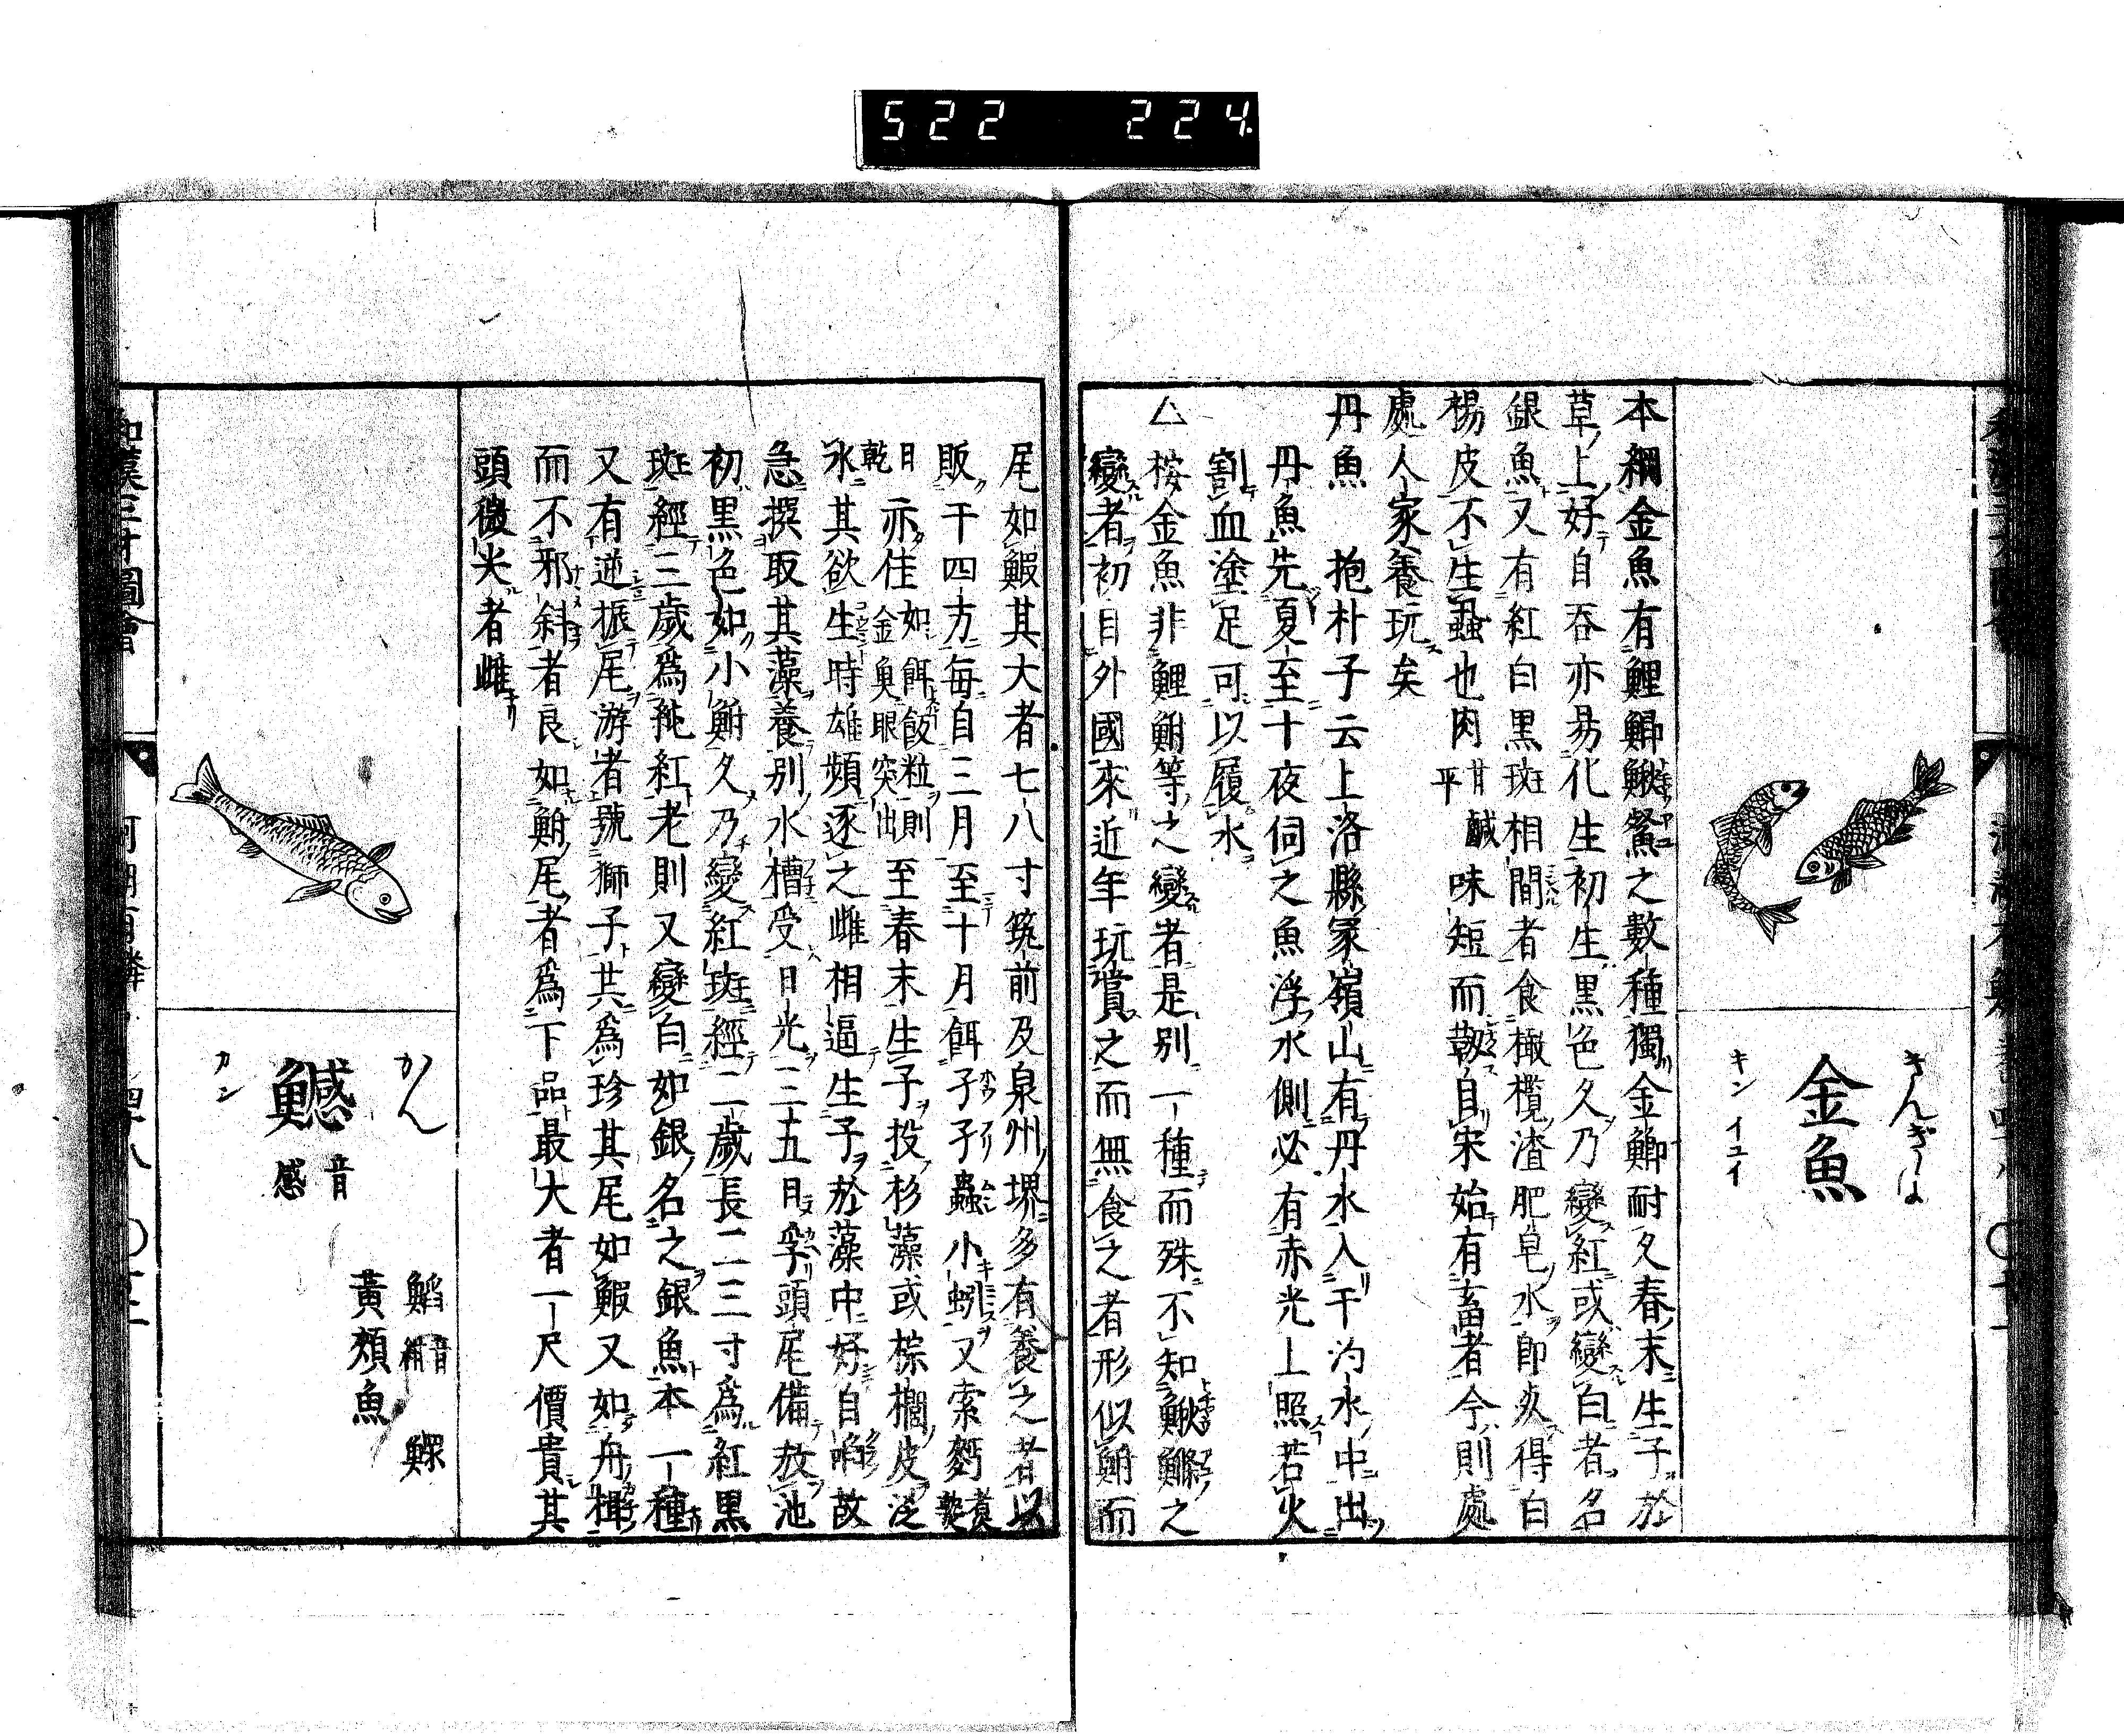 522 224
きんぎよ
金魚
キン イユイ
本綱金魚有鯉鯽鰍鱟之數種獨金鯽耐久春末生子於
草上好自吞亦易化生初生黒色久乃變紅或變白者名
銀魚又有紅白黒斑相間者食橄欖渣肥皂水即死得白
楊皮不生虱也肉甘鹹平味短而韌自宋始有畜者今則處
處人家養玩矣
丹魚 抱朴子云上洛縣冢嶺山有丹水入于汋水中出
丹魚先夏至十夜伺之魚浮水側必有赤光上照若火
割血塗足可以履水
△ 按金魚非鯉鮒等之變者是別一種而殊不知鰍鰶之
變者初自外國來近年玩賞之而無食之者形似鮒而
尾如鰕其大者七八寸筑前及泉州堺多有養之者以
販于四方每自三月至十月餌孑孑蟲小蚓又索麪煑
乾 亦佳如餌飯粒則金魚眼突出至春末生子投杉藻或棕櫚皮泛
水其欲生時雄頻逐之雌相逼生子於藻中好自啗故
急撰取其藻養別水槽受日光三五日孚頭尾備放池
初黒色如小鮒久乃變紅斑經二歲長二三寸爲紅黒
斑經三歲爲純紅老則又變白如銀名之銀魚本一種
又有逆振尾游者號獅子共爲珍其尾如鰕又如舟楫
而不邪斜者良如鮒尾者爲下品最大者一尺價貴其
頭微尖者雌
かん
鱤
音感
カン
黃頰魚
和漢三才圖會